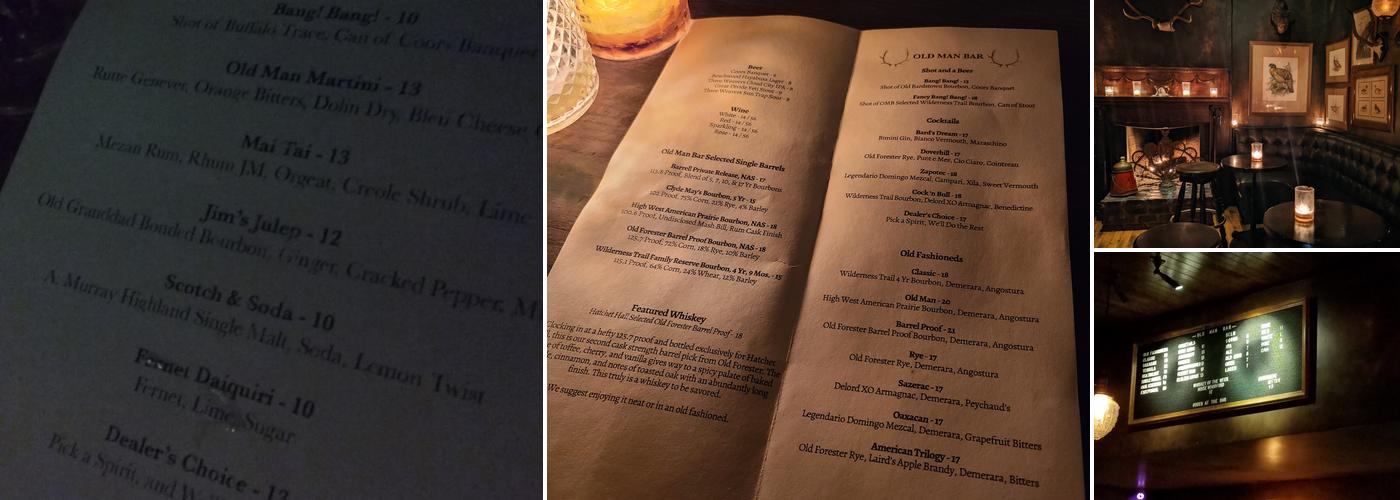 Bang! Bang! - 10
Shot of Buffalo Trace, Can of Coors Banquet
Old Man Martini - 13
Rutte Genever, Orange Bitters, Dolin Dry, Bleu Cheese
Mai Tai - 13
Mezan Rum, Rhum JM, Orgeat, Creole Shrub, Lime
Jim's Julep - 12
Old Granddad Bonded Bourbon, Ginger, Cracked Pepper, M
Scotch & Soda - 10
A. Murray Highland Single Malt, Soda, Lemon Twist
Fernet Daiquiri - 10
Fernet, Lime, Sugar
Dealer's Choice - 13
Pick a Spirit, and W
Beer
Coors Banquet - 6
Beachwood Hayabusa Lager - 8
Three Weavers Cloud City IPA - 8
Great Divide Yeti Stout - 9
Three Weavers Sun Trap Sour - 8
Wine
White - 14 / 56
Red - 14 / 56
Sparkling - 14 / 56
Rose - 14 / 56
Old Man Bar Selected Single Barrels
Barrell Private Release, NAS - 17
113.8 Proof, Blend of 5, 7, 10, & 17 Yr Bourbons
Clyde May's Bourbon, 5 Yr - 15
102 Proof, 75% Corn, 21% Rye, 4% Barley
High West American Prairie Bourbon, NAS - 18
100.6 Proof, Undisclosed Mash Bill, Rum Cask Finish
Old Forester Barrel Proof Bourbon, NAS - 18
125.7 Proof, 72% Corn, 18% Rye, 10% Barley
Wilderness Trail Family Reserve Bourbon, 4 Yr, 9 Mos. - 15
115.1 Proof, 64% Corn, 24% Wheat, 12% Barley
Featured Whiskey
Hatchet Hall Selected Old Forester Barrel Proof - 18
Clocking in at a hefty 125.7 proof and bottled exclusively for Hatchet
this is our second cask strength barrel pick from Old Forester. The
of toffee, cherry, and vanilla gives way to a spicy palate of baked
cinnamon, and notes of toasted oak with an abundantly long
finish. This truly is a whiskey to be savored.
We suggest enjoying it neat or in an old fashioned.
OLD MAN BAR
Shot and a Beer
Bang! Bang! - 13
Shot of Old Bardstown Bourbon, Coors Banquet
Fancy Bang! Bang! - 18
Shot of OMB Selected Wilderness Trail Bourbon, Can of Stout
Cocktails
Bard's Dream - 17
Bimini Gin, Bianco Vermouth, Maraschino
Doverhill - 17
Old Forester Rye, Punt e Mes, Cio Ciaro, Cointreau
Zapotec - 18
Legendario Domingo Mezcal, Campari, Xila, Sweet Vermouth
Cock 'n Bull - 18
Wilderness Trail Bourbon, Delord XO Armagnac, Benedictine
Dealer's Choice - 17
Pick a Spirit, We'll Do the Rest
Old Fashioneds
Classic - 18
Wilderness Trail 4 Yr Bourbon, Demerara, Angostura
Old Man - 20
High West American Prairie Bourbon, Demerara, Angostura
Barrel Proof - 21
Old Forester Barrel Proof Bourbon, Demerara, Angostura
Rye - 17
Old Forester Rye, Demerara, Angostura
Sazerac - 17
Delord XO Armagnac, Demerara, Peychaud's
Oaxacan - 17
Legendario Domingo Mezcal, Demerara, Grapefruit Bitters
American Trilogy - 17
Old Forester Rye, Laird's Apple Brandy, Demerara, Bitters
OLD MAN BAR
OLD FASHIONEDS
COCKTAILS
BEER
WHISKEY OF THE WEEK
ORDER AT THE BAR